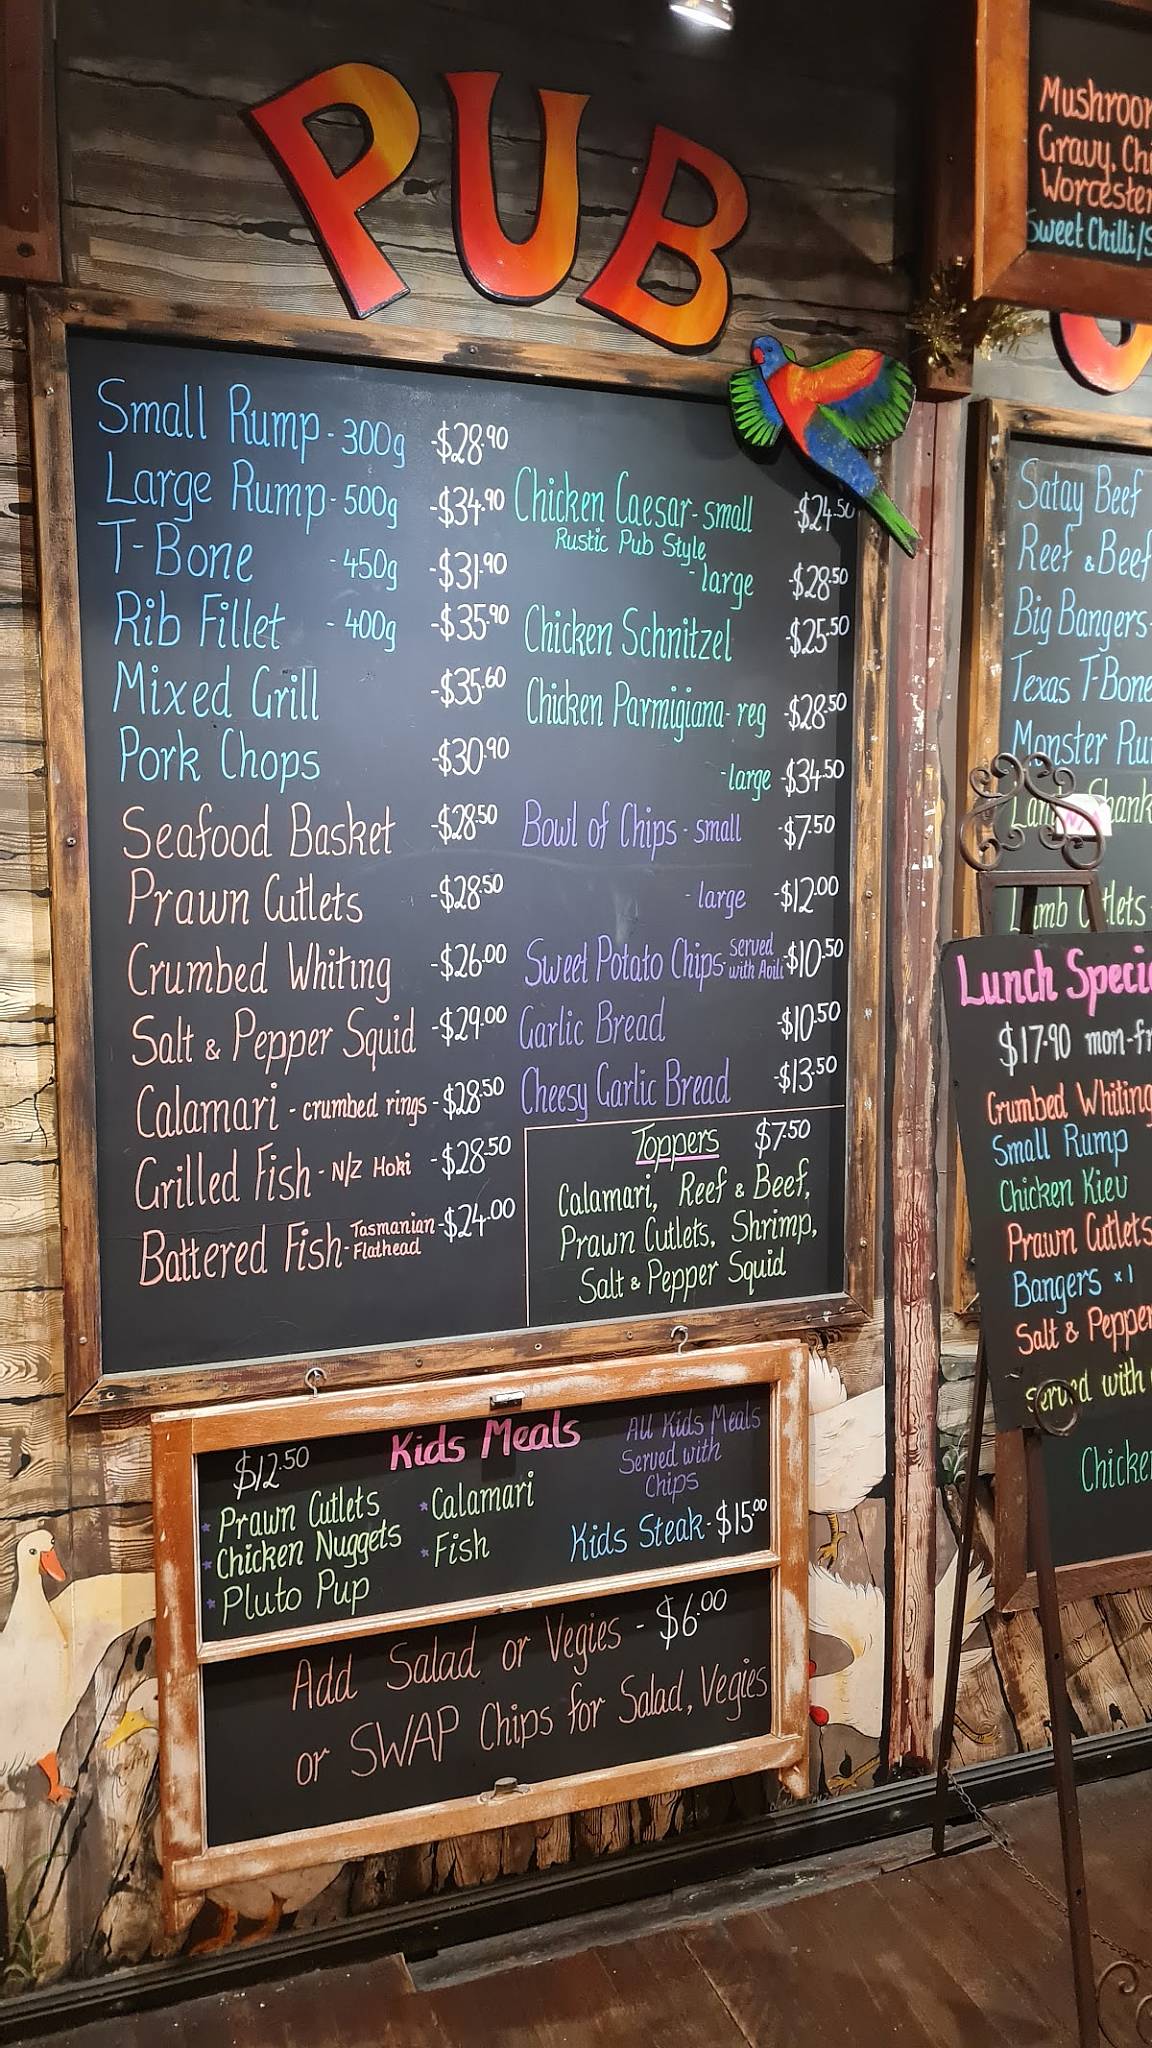 PUB
Small Rump - 300g -$28.90
Large Rump - 500g -$34.90
T-Bone - 450g -$31.90
Rib Fillet - 400g -$35.90
Mixed Grill -$35.60
Pork Chops -$30.90
Seafood Basket -$28.50
Prawn Cutlets -$28.50
Crumbed Whiting -$26.00
Salt & Pepper Squid -$29.00
Calamari - crumbed rings -$28.50
Grilled Fish - N/Z Hoki -$28.50
Battered Fish - Tasmanian Flathead -$24.00
Chicken Caesar - small -$24.50
Rustic Pub Style
- large -$28.50
Chicken Schnitzel -$25.50
Chicken Parmigiana - reg -$28.50
- large -$34.50
Bowl of Chips - small -$7.50
- large -$12.00
Sweet Potato Chips - served with Aoili -$10.50
Garlic Bread -$10.50
Cheesy Garlic Bread -$13.50
Toppers $7.50
Calamari, Reef & Beef,
Prawn Cutlets, Shrimp,
Salt & Pepper Squid
Kids Meals
$12.50
* Prawn Cutlets
* Chicken Nuggets
* Pluto Pup
* Calamari
* Fish
All Kids Meals
Served with
Chips
Kids Steak - $15.00
Add Salad or Vegies - $6.00
or SWAP Chips for Salad, Vegies
Gravy,
Sweet Chilli/
Satay Beef
Reef & Beef
Big Bangers-
Texas T-Bone
Monster
Lunch
$17.90 mon-
Crumbed Whiting
Small Rump
Chicken Kiev
Prawn Cutlets
Bangers x1
Salt & Pepper
served with